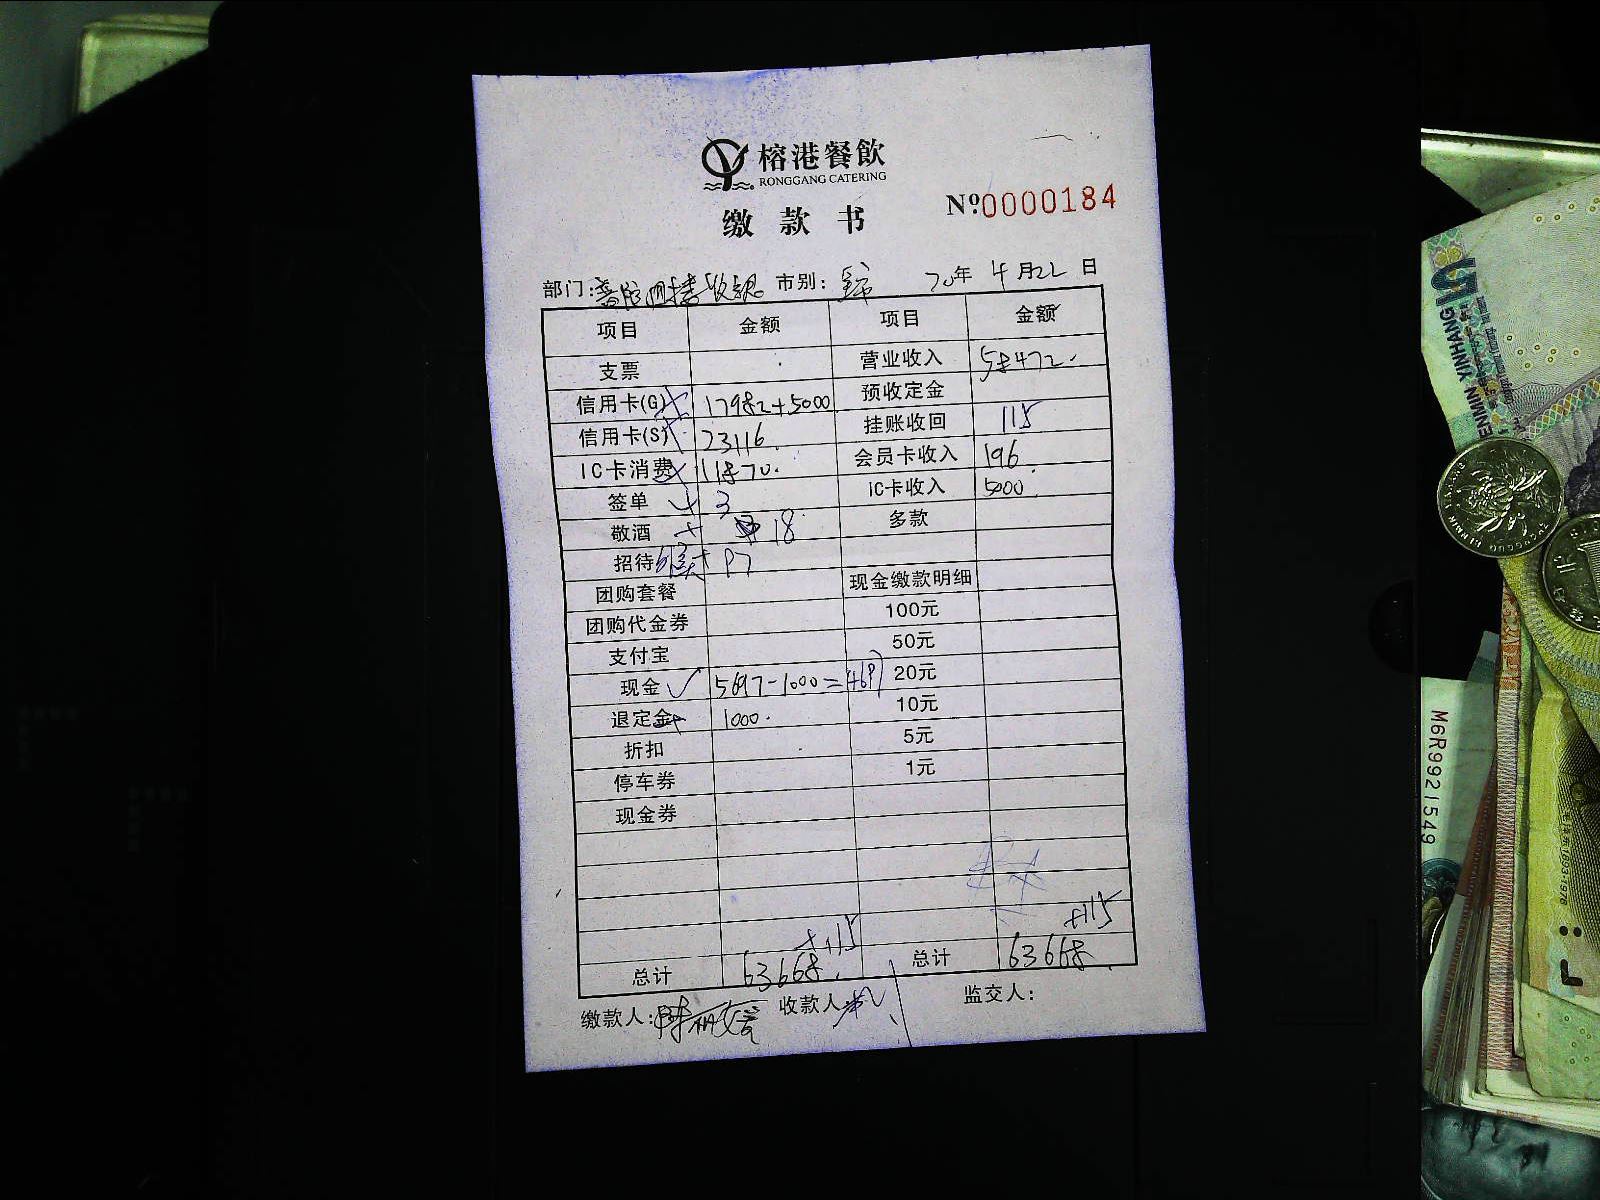 榕港餐飲
RONGGANG CATERING
缴款书
№0000184
部门: 市别: 年 4月22日
项目 金额 项目 金额
支票 营业收入 58472.
信用卡(G) 17982+5000 预收定金
信用卡(S) 23116. 挂账收回 115
IC卡消费 11870. 会员卡收入 196.
签单 3 IC卡收入 5000.
敬酒 18 多款
招待
团购套餐 现金缴款明细
团购代金券 100元
支付宝 50元
现金 5697-1000= 20元
退定金 1000. 10元
折扣 5元
停车券 1元
现金券
+115 +115
总计 63668. 总计 63668.
缴款人: 收款人 监交人:
ENMIN YINHANG
5
M6R9921549
1893-1976